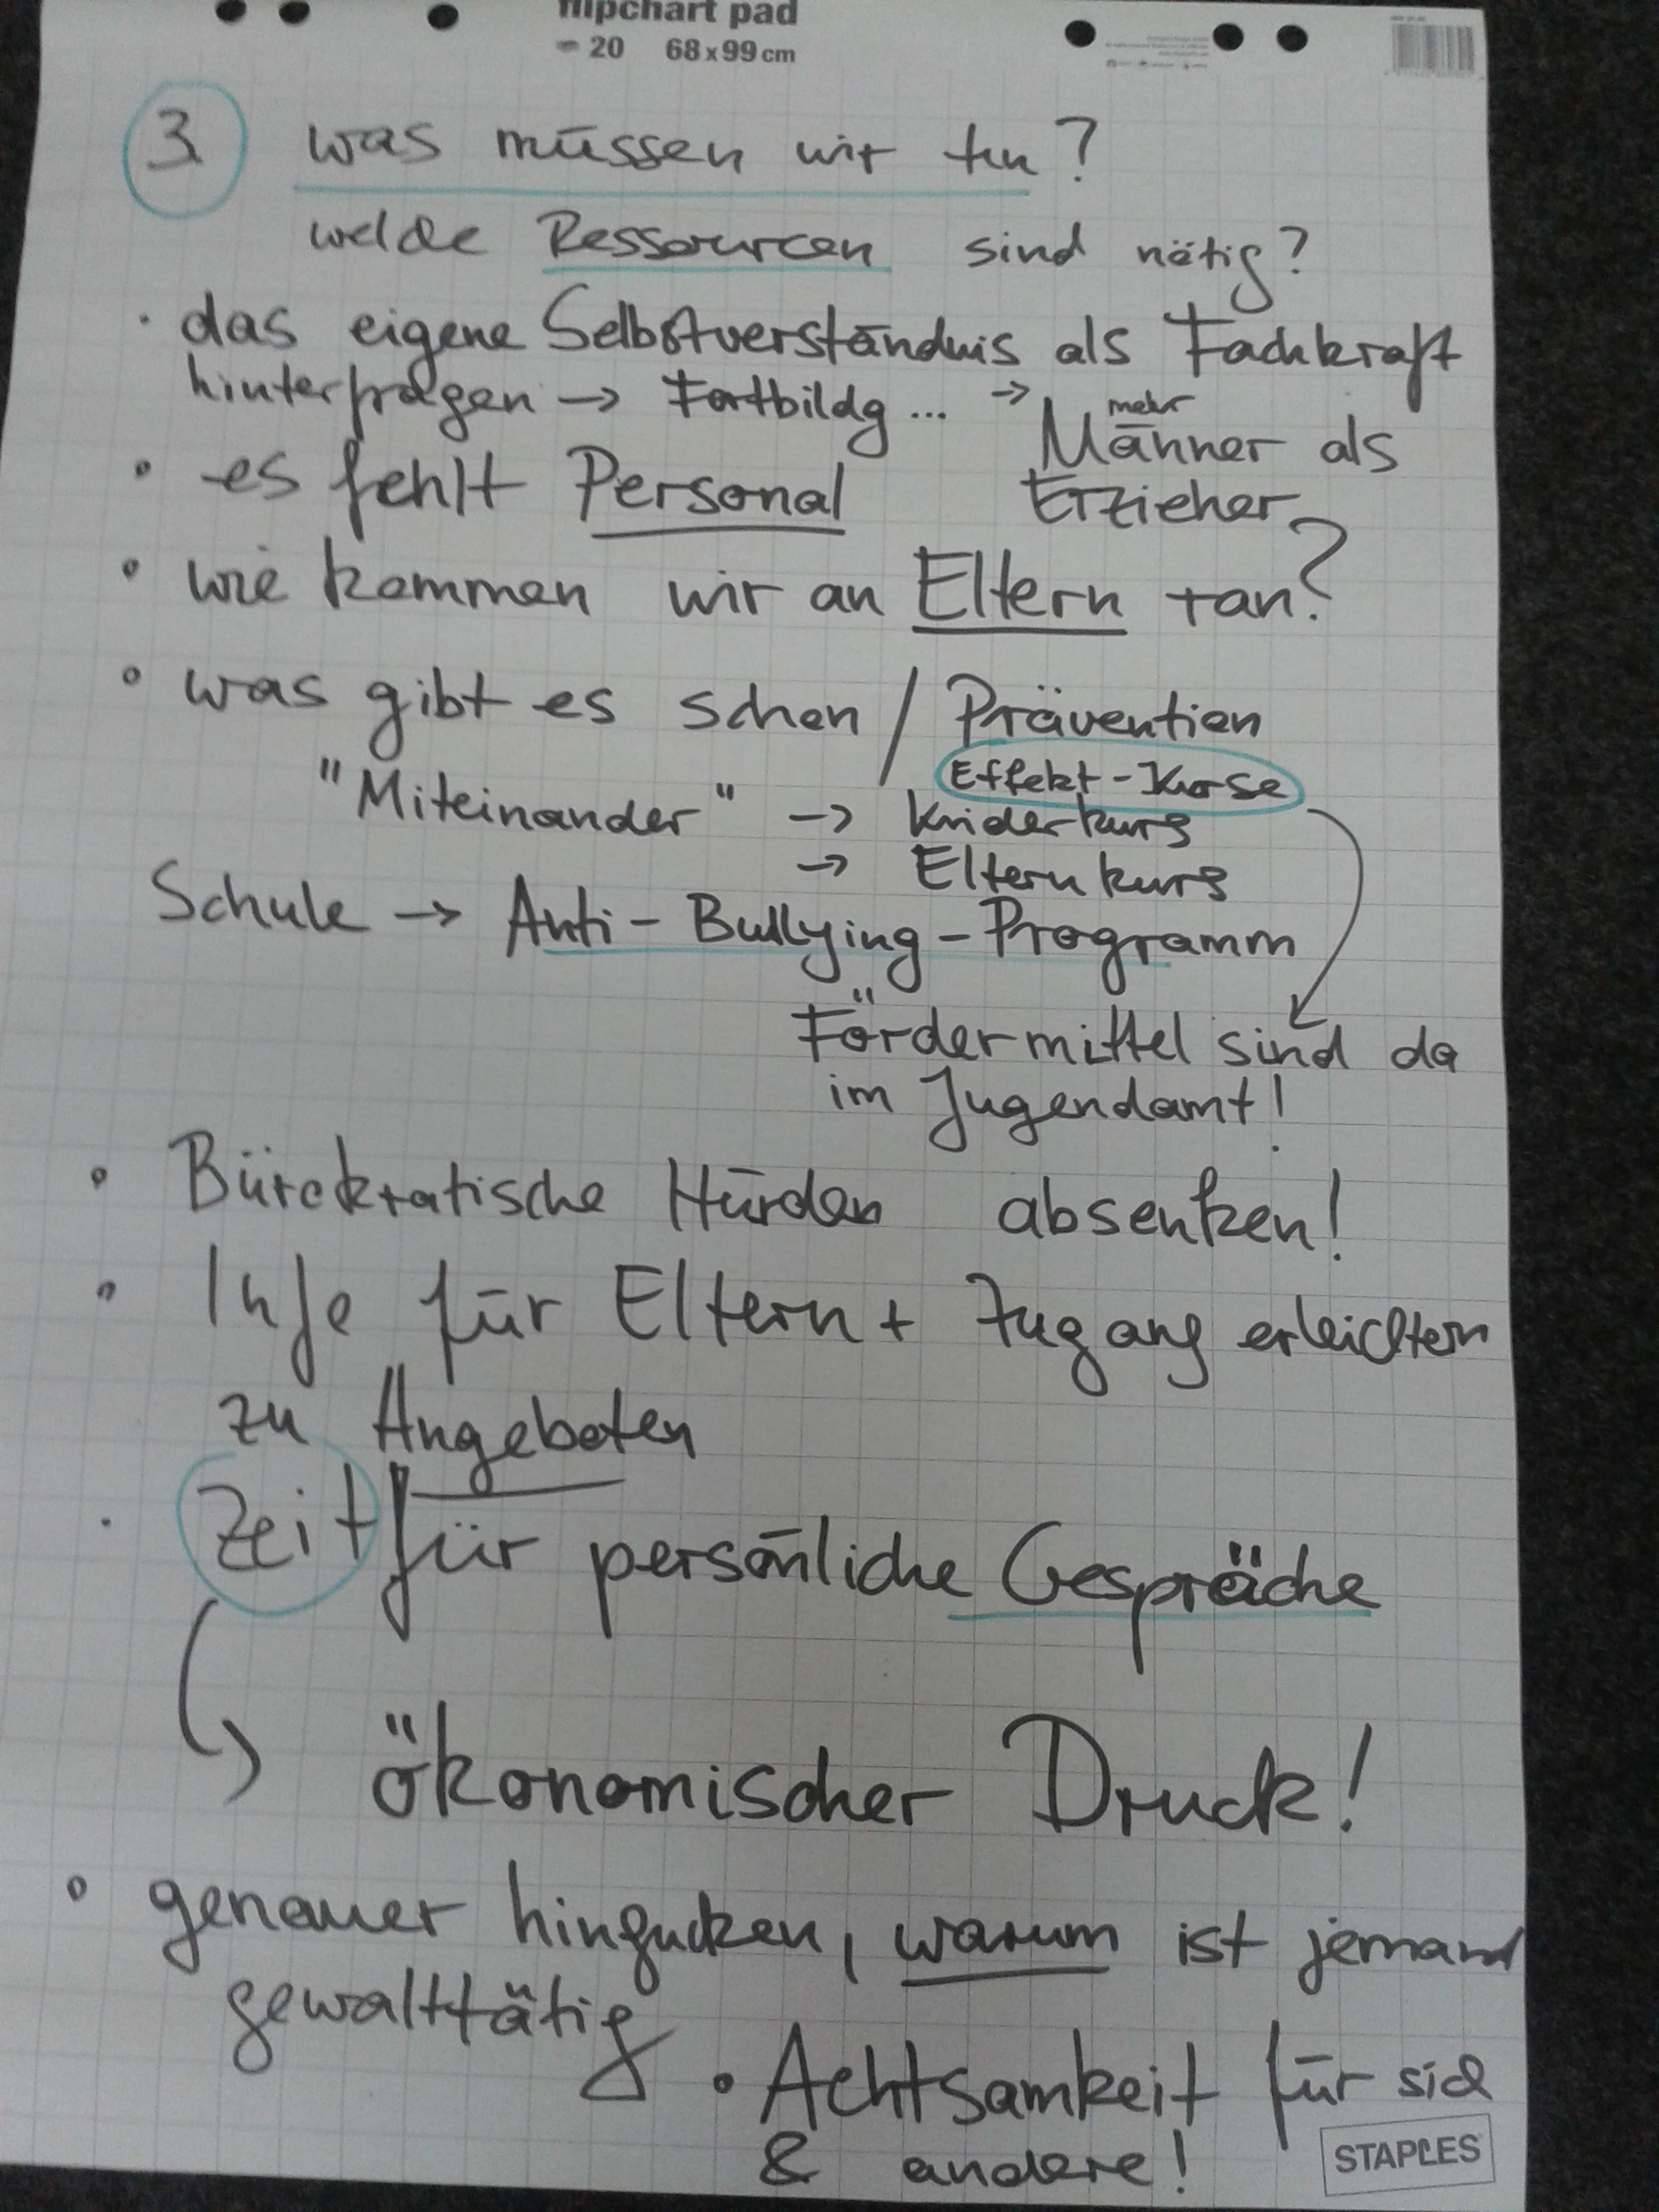 flipchart pad
20 68x99cm
3. was müssen wir tun?
welche Ressourcen sind nötig?
· das eigene Selbstverständnis als Fachkraft
hinterfragen → Fortbildg ... → mehr
Männer als
• es fehlt Personal Erzieher
• wie kommen wir an Eltern ran?
• was gibt es schon / Prävention
Effekt-Kurse
"Miteinander" → Kinderkurs
→ Elternkurs
Schule → Anti-Bullying-Programm
Fördermittel sind da
im Jugendamt!
• Bürokratische Hürden absenken!
• Info für Eltern + Zugang erleichtern
zu Angeboten
· Zeit für persönliche Gespräche
ökonomischer Druck!
• genauer hingucken, warum ist jemand
gewalttätig
• Achtsamkeit für sich
& andere!
STAPLES